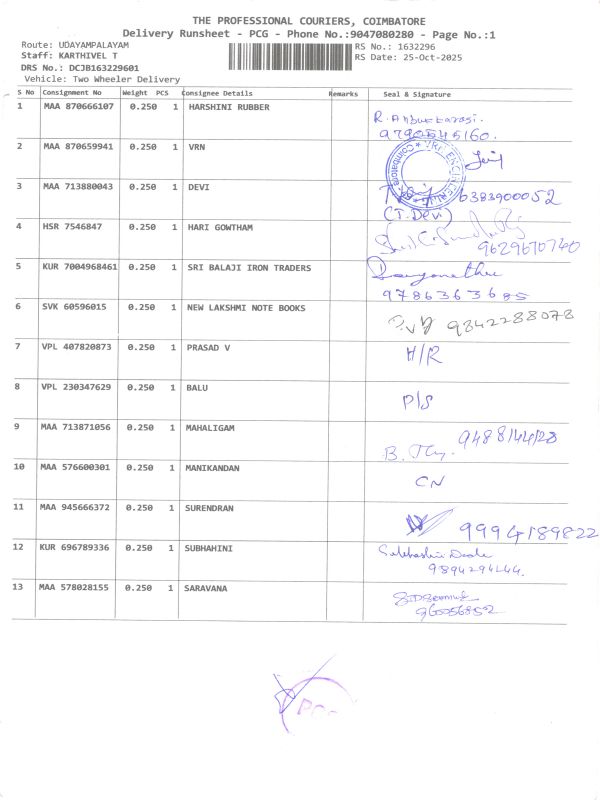 THE PROFESSIONAL COURIERS, COIMBATORE
Delivery Runsheet - PCG - Phone No.:9047080280 - Page No.:1
Route: UDAYAMPALAYAM
Staff: KARTHIVEL T
DRS No.: DCJB163229601
Vehicle: Two Wheeler Delivery
RS No.: 1632296
RS Date: 25-Oct-2025
S No Consignment No Weight PCS Consignee Details Remarks Seal & Signature
1 MAA 870666107 0.250 1 HARSHINI RUBBER
9790545160.
2 MAA 870659941 0.250 1 VRN
3 MAA 713880043 0.250 1 DEVI 6383900052
(T. Devi)
4 HSR 7546847 0.250 1 HARI GOWTHAM
9629670740
5 KUR 7004968461 0.250 1 SRI BALAJI IRON TRADERS
9786363685
6 SVK 60596015 0.250 1 NEW LAKSHMI NOTE BOOKS 9842288078
7 VPL 407820873 0.250 1 PRASAD V H/R
8 VPL 230347629 0.250 1 BALU P/S
9 MAA 713871056 0.250 1 MAHALIGAM
10 MAA 576600301 0.250 1 MANIKANDAN CN
11 MAA 945666372 0.250 1 SURENDRAN 9994189822
12 KUR 696789336 0.250 1 SUBHAHINI
13 MAA 578028155 0.250 1 SARAVANA